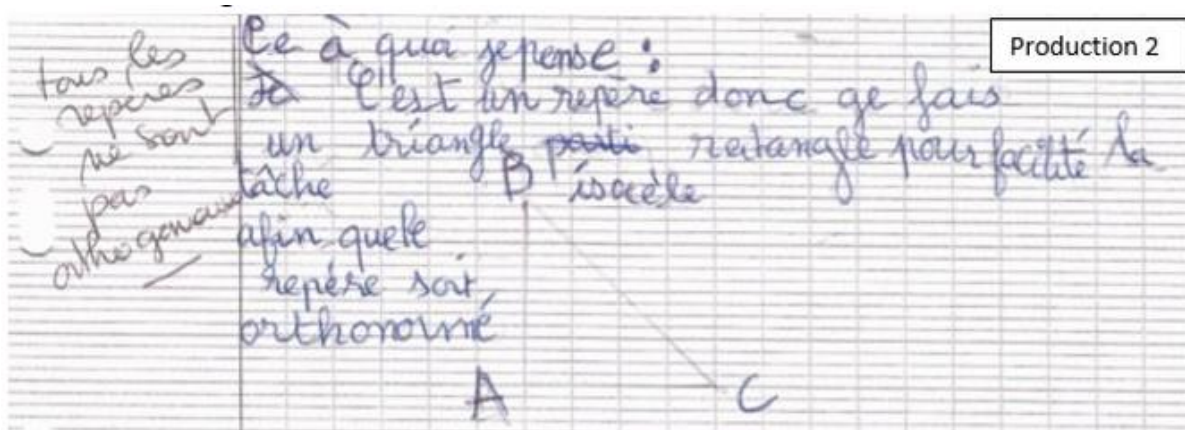 Production 2
tous les
repères
ne sont
pas
orthogonaux
Ce à quoi je pense :
C'est un repère donc ge fais
un triangle parti rectangle pour facilité la
tâche B isocèle
afin quele
repère soit
orthonormé
A C